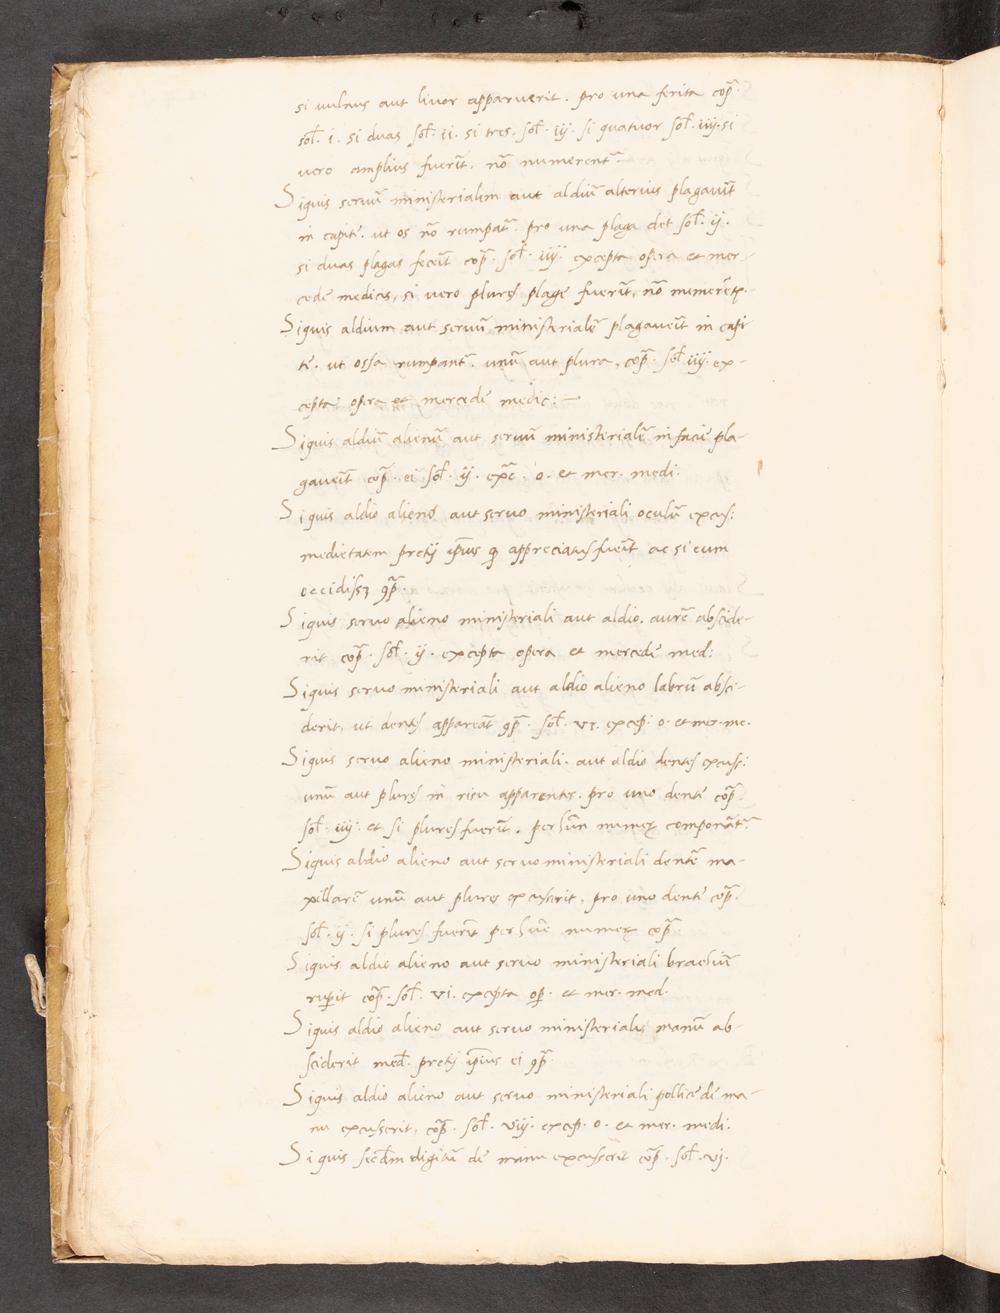 si vulnus aut livor apparuerit. pro una ferita cop̃.
sol̃. i. si duas sol̃. ii. si tres. sol̃. iij. si quatuor sol̃. iiij. si
vero amplius fuerĩt, nõ numerent̃.
Siquis servũ ministerialem aut aldiũ alterius plagaverĩt
in capite. ut os nõ rumpat̃. pro una plaga det sol̃. ij.
si duas plagas fecerĩt cop̃. sol̃. iiij. excepta opera et mer-
cede medici, si vero plures plage fuerĩt, nõ numerẽt̃.
Siquis aldium aut servũ ministerialẽ plagaverĩt in capi
te. ut ossa rumpant̃. unũ aut plura, cop̃. sol̃. iiij. ex-
cepta opera et mercede medic:—
Siquis aldiũ alienũ aut servũ ministerialẽ in facie pla-
gaverĩt cop̃. ei sol̃. ij. exc̃. o. et mer. medi.
Siquis aldio alieno aut servo ministeriali oculũ excus:
medietatem pretij ip̃ius q̃ appreciatus fuerĩt ac si eum
occidissꝫ ꝯp̃.
Siquis servo alieno ministeriali aut aldio. aurẽ abscide-
rit cop̃. sol̃. ij. excepta opera et mercede med:
Siquis servo ministeriali aut aldio alieno labrũ absci-
derit, ut dentes appareãt ꝯp̃. sol̃. vi. excep: o. et mer. me.
Siquis servo alieno ministeriali. aut aldio dentes excuss:
unũ aut plures in risu apparentes. pro uno dente cop̃.
sol̃. iiij. et si plures fuerĩt. per hũc numeꝝ componãt̃.
Siquis aldio alieno aut servo ministeriali dentẽ ma-
xillarẽ unũ aut plures excusserit, pro uno dente cop̃.
sol̃. ij. si plures fuerĩt per hũc numeꝝ cop̃.
Siquis aldio alieno aut servo ministeriali brachiũ
ruperit cop̃. sol̃. vi. excepta op̃. et mer. med.
Siquis aldio alieno aut servo ministeriali, manũ ab-
sciderit med̃. pretij ip̃ius ei ꝯp̃.
Siquis aldio alieno aut servo ministeriali pollicẽ de ma-
nu excusserit, cop̃. sol̃. viij. excep. o. et mer. medi.
Siquis secd̃m digitũ de manu excusserit cop̃. sol̃. vj.